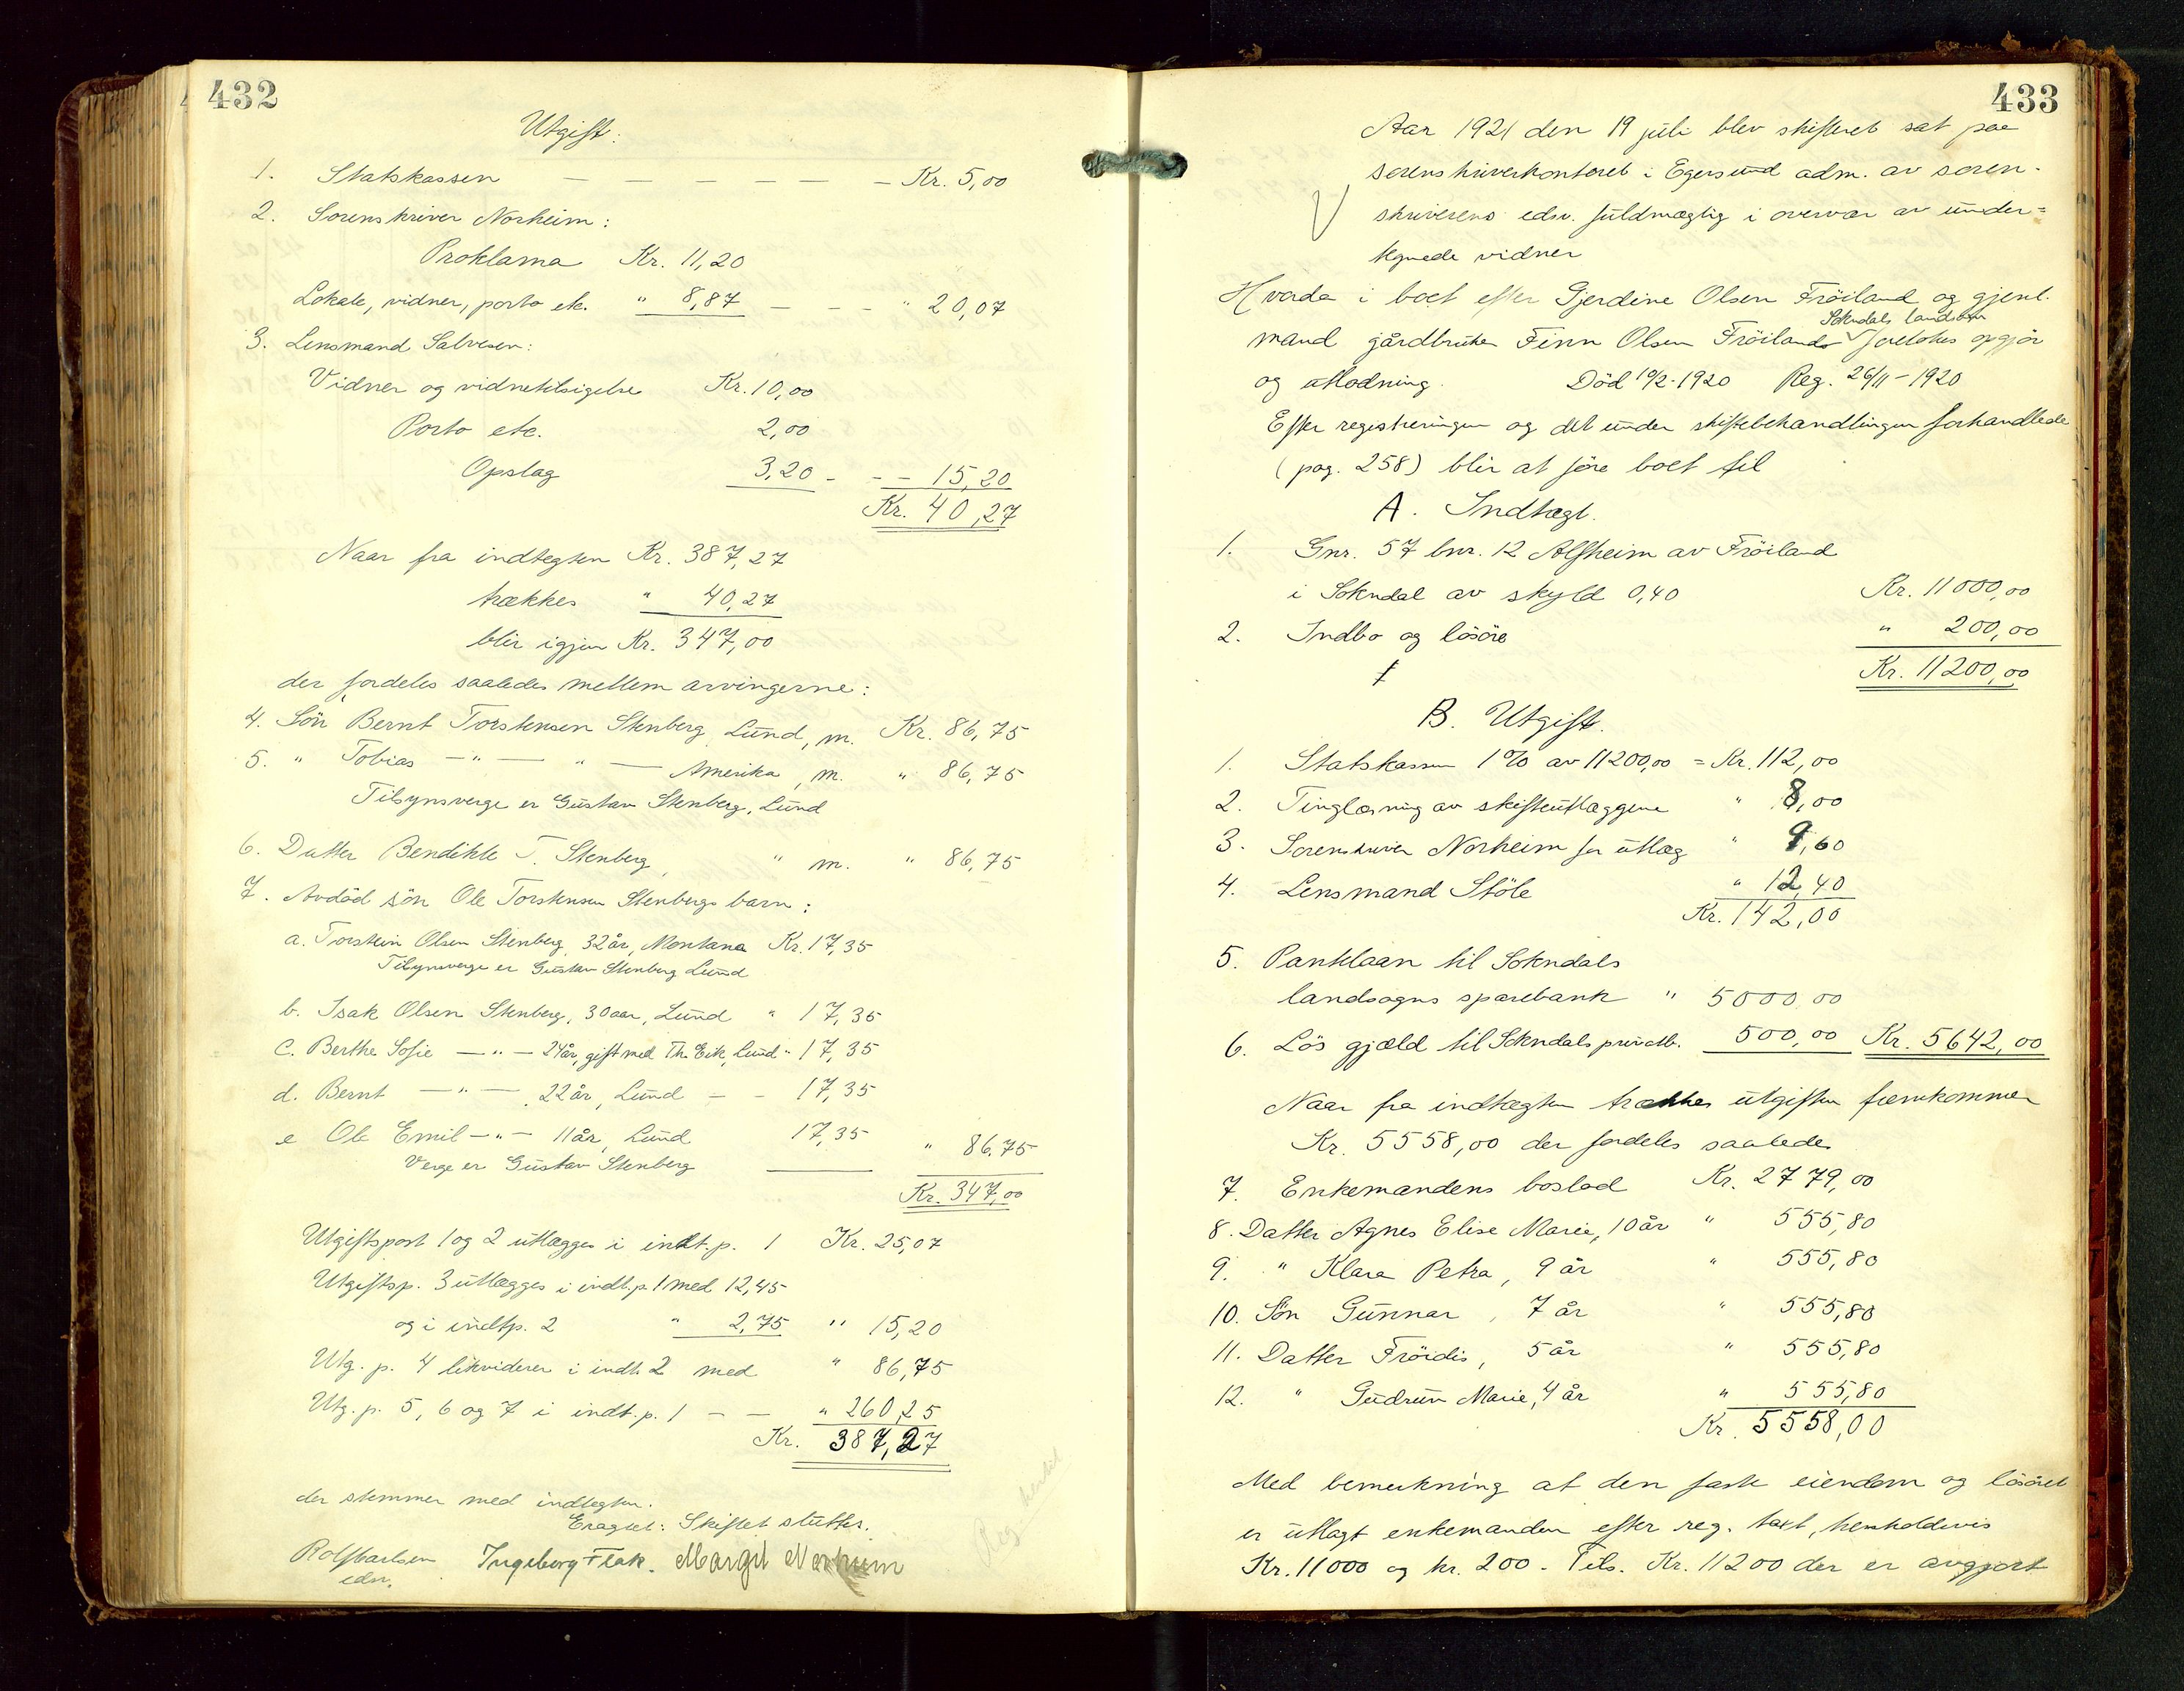 432
Utgift:
1. Statskassen — — — — — — Kr. 5,00
2. Sorenskriver Norheim:
Proklama Kr. 11,20
Lokale, vidner, porto etc. " 8,87 — — — " 20,07
3. Lensmand Salvesen:
Vidner og vidnetilsigelse Kr. 10,00
Porto etc. 2,00
Opslag 3,20 - - - 15,20
Kr. 40,27
Naar fra indtegten Kr. 387,27
trækkes " 40,27
blir igjen Kr. 347,00
der fordeles saaledes mellem arvingerne:
4. Sön Bernt Torstensen Stenberg, Lund, m. Kr. 86,75
5. " Tobias —"— " — Amerika, m. " 86,75
Tilsynsverge er Gustav Stenberg, Lund
6. Datter Bendikte T. Stenberg, " m. " 86,75
7. Avdöd sön Ole Torstensen Stenbergs barn:
a. Torstein Olsen Stenberg, 32 år, Montana Kr. 17,35
Tilsynsverge er Gustav Stenberg Lund
b. Isak Olsen Stenberg, 30 aar, Lund " 17,35
c. Berthe Sofie —"— 24 år, gift med Th. Eik, Lund " 17,35
d. Bernt —"— 22 år, Lund - - 17,35
e Ole Emil —"— 11 år, Lund 17,35 " 86,75
Verge er Gustav Stenberg
Kr. 347,00
Utgiftspost 1 og 2 utlægges i indt. p. 1 Kr. 25,07
Utgiftsp. 3 utlægges i indt. p. 1 med 12,45
og i indtp. 2 " 2,75 " 15,20
Utg. p. 4 likviderer i indt. 2 med " 86,75
Utg. p. 5, 6 og 7 i indt. p. 1 — — " 260,25
Kr. 387,27
der stemmer med indtegten.
Eragtet: Skiftet sluttes.
Rolf Carlsen Ingeborg Flak. Margit Norheim
edsv.
433
Aar 1921 den 19 juli blev skifteret sat paa
sorenskriverkontoret i Egersund adm. av soren-
skriverens edsv. fuldmægtig i overvær av under=
tegnede vidner
Hvorda i boet efter Gjerdine Olsen Fröiland og gjenl.
Sokndals landsogn
mand gårdbruker Finn Olsen Fröilands foretokes opgjör
og utlodning. Död 10/2-1920 Reg. 26/11-1920
Efter registreringen og det under skiftebehandlingen forhandlede
(pag. 258) blir at före boet til
A. Indtægt.
1. Gnr. 57 bnr. 12 Alfheim av Fröiland
i Sokndal av skyld 0,40 Kr. 11000,00
2. Indbo og lösöre " 200,00
Kr. 11200,00
B. Utgift.
1. Statskassen 1% av 11200,00 = Kr. 112,00
2. Tinglæsning av skifteutlæggene " 8,00
3. Sorenskriver Norheim for utlæg " 9,60
4. Lensmand Stöle " 12,40
Kr. 142,00
5. Pantelaan til Sokndals
landsogns sparebank " 5000,00
6. Lös gjæld til Sokndals privatb. 500,00 Kr. 5642,00
Naar fra indtægten trækkes utgiften fremkommer
Kr. 5558,00 der fordeles saaledes
7. Enkemandens boslod Kr. 2779,00
8. Datter Agnes Elise Marie, 10 år " 555,80
9. " Klara Petra, 9 år " 555,80
10. Sön Gunnar, 7 år " 555,80
11. Datter Fröidis, 5 år " 555,80
12. " Gudrun Marie, 4 år " 555,80
Kr. 5558,00
Med bemerkning at den faste eiendom og lösöret
er utlagt enkemanden efter reg. takt, henholdsvis
Kr. 11000 og kr. 200. - Tils. Kr. 11200 der er avgjort